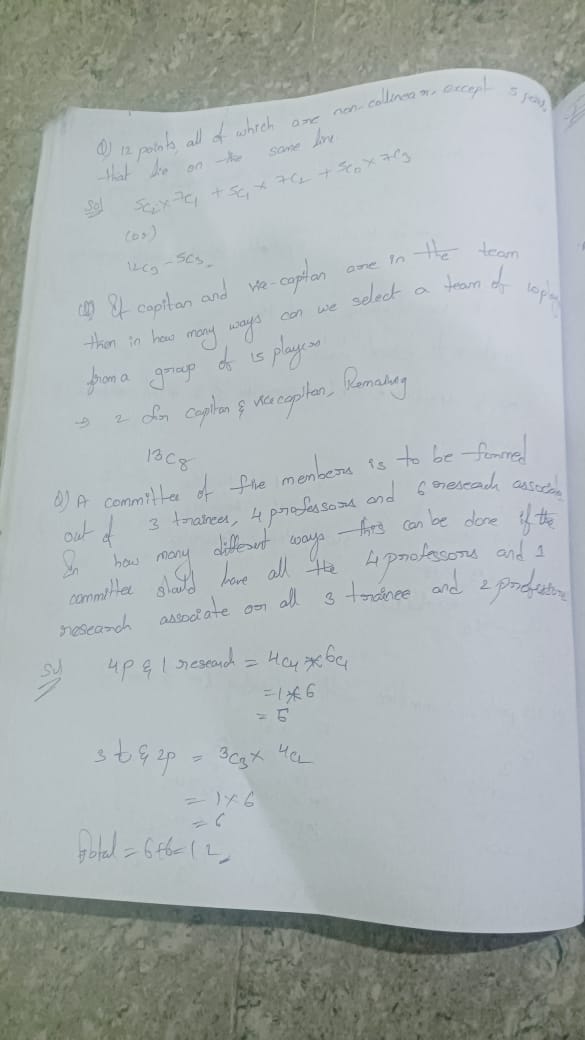 Q) 12 points, all of which are non-collinear, except 5
that lie on the same line
Sol 5C2 x 7C1 + 5C1 x 7C2 + 5C0 x 7C3
(or)
12C3 - 5C3
Q) If capitan and vie-capitan are in the team
then in how many ways can we select a team of 10
from a group of 15 players
→ 2 for capitan & vice capitan, Remaing
13C8
Q) A committee of five members is to be formed
out of 3 trainees, 4 professors and 6 reseach
In how many different ways this can be done if the
committee should have all the 4 professors and 1
research associate or all 3 trainee and 2
Sol 4P & 1 reseach = 4C4 * 6C1
= 1 * 6
= 6
3 t & 2p = 3C3 x 4C2
= 1 x 6
= 6
Total = 6+6 = 12